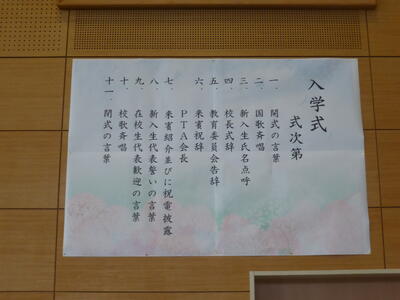 入学式
式次第
一、開式の言葉
二、国歌斉唱
三、新入生氏名点呼
四、校長式辞
五、教育委員会告辞
六、来賓祝辞
ＰＴＡ会長
七、来賓紹介並びに祝電披露
八、新入生代表誓いの言葉
九、在校生代表歓迎の言葉
十、校歌斉唱
十一、閉式の言葉